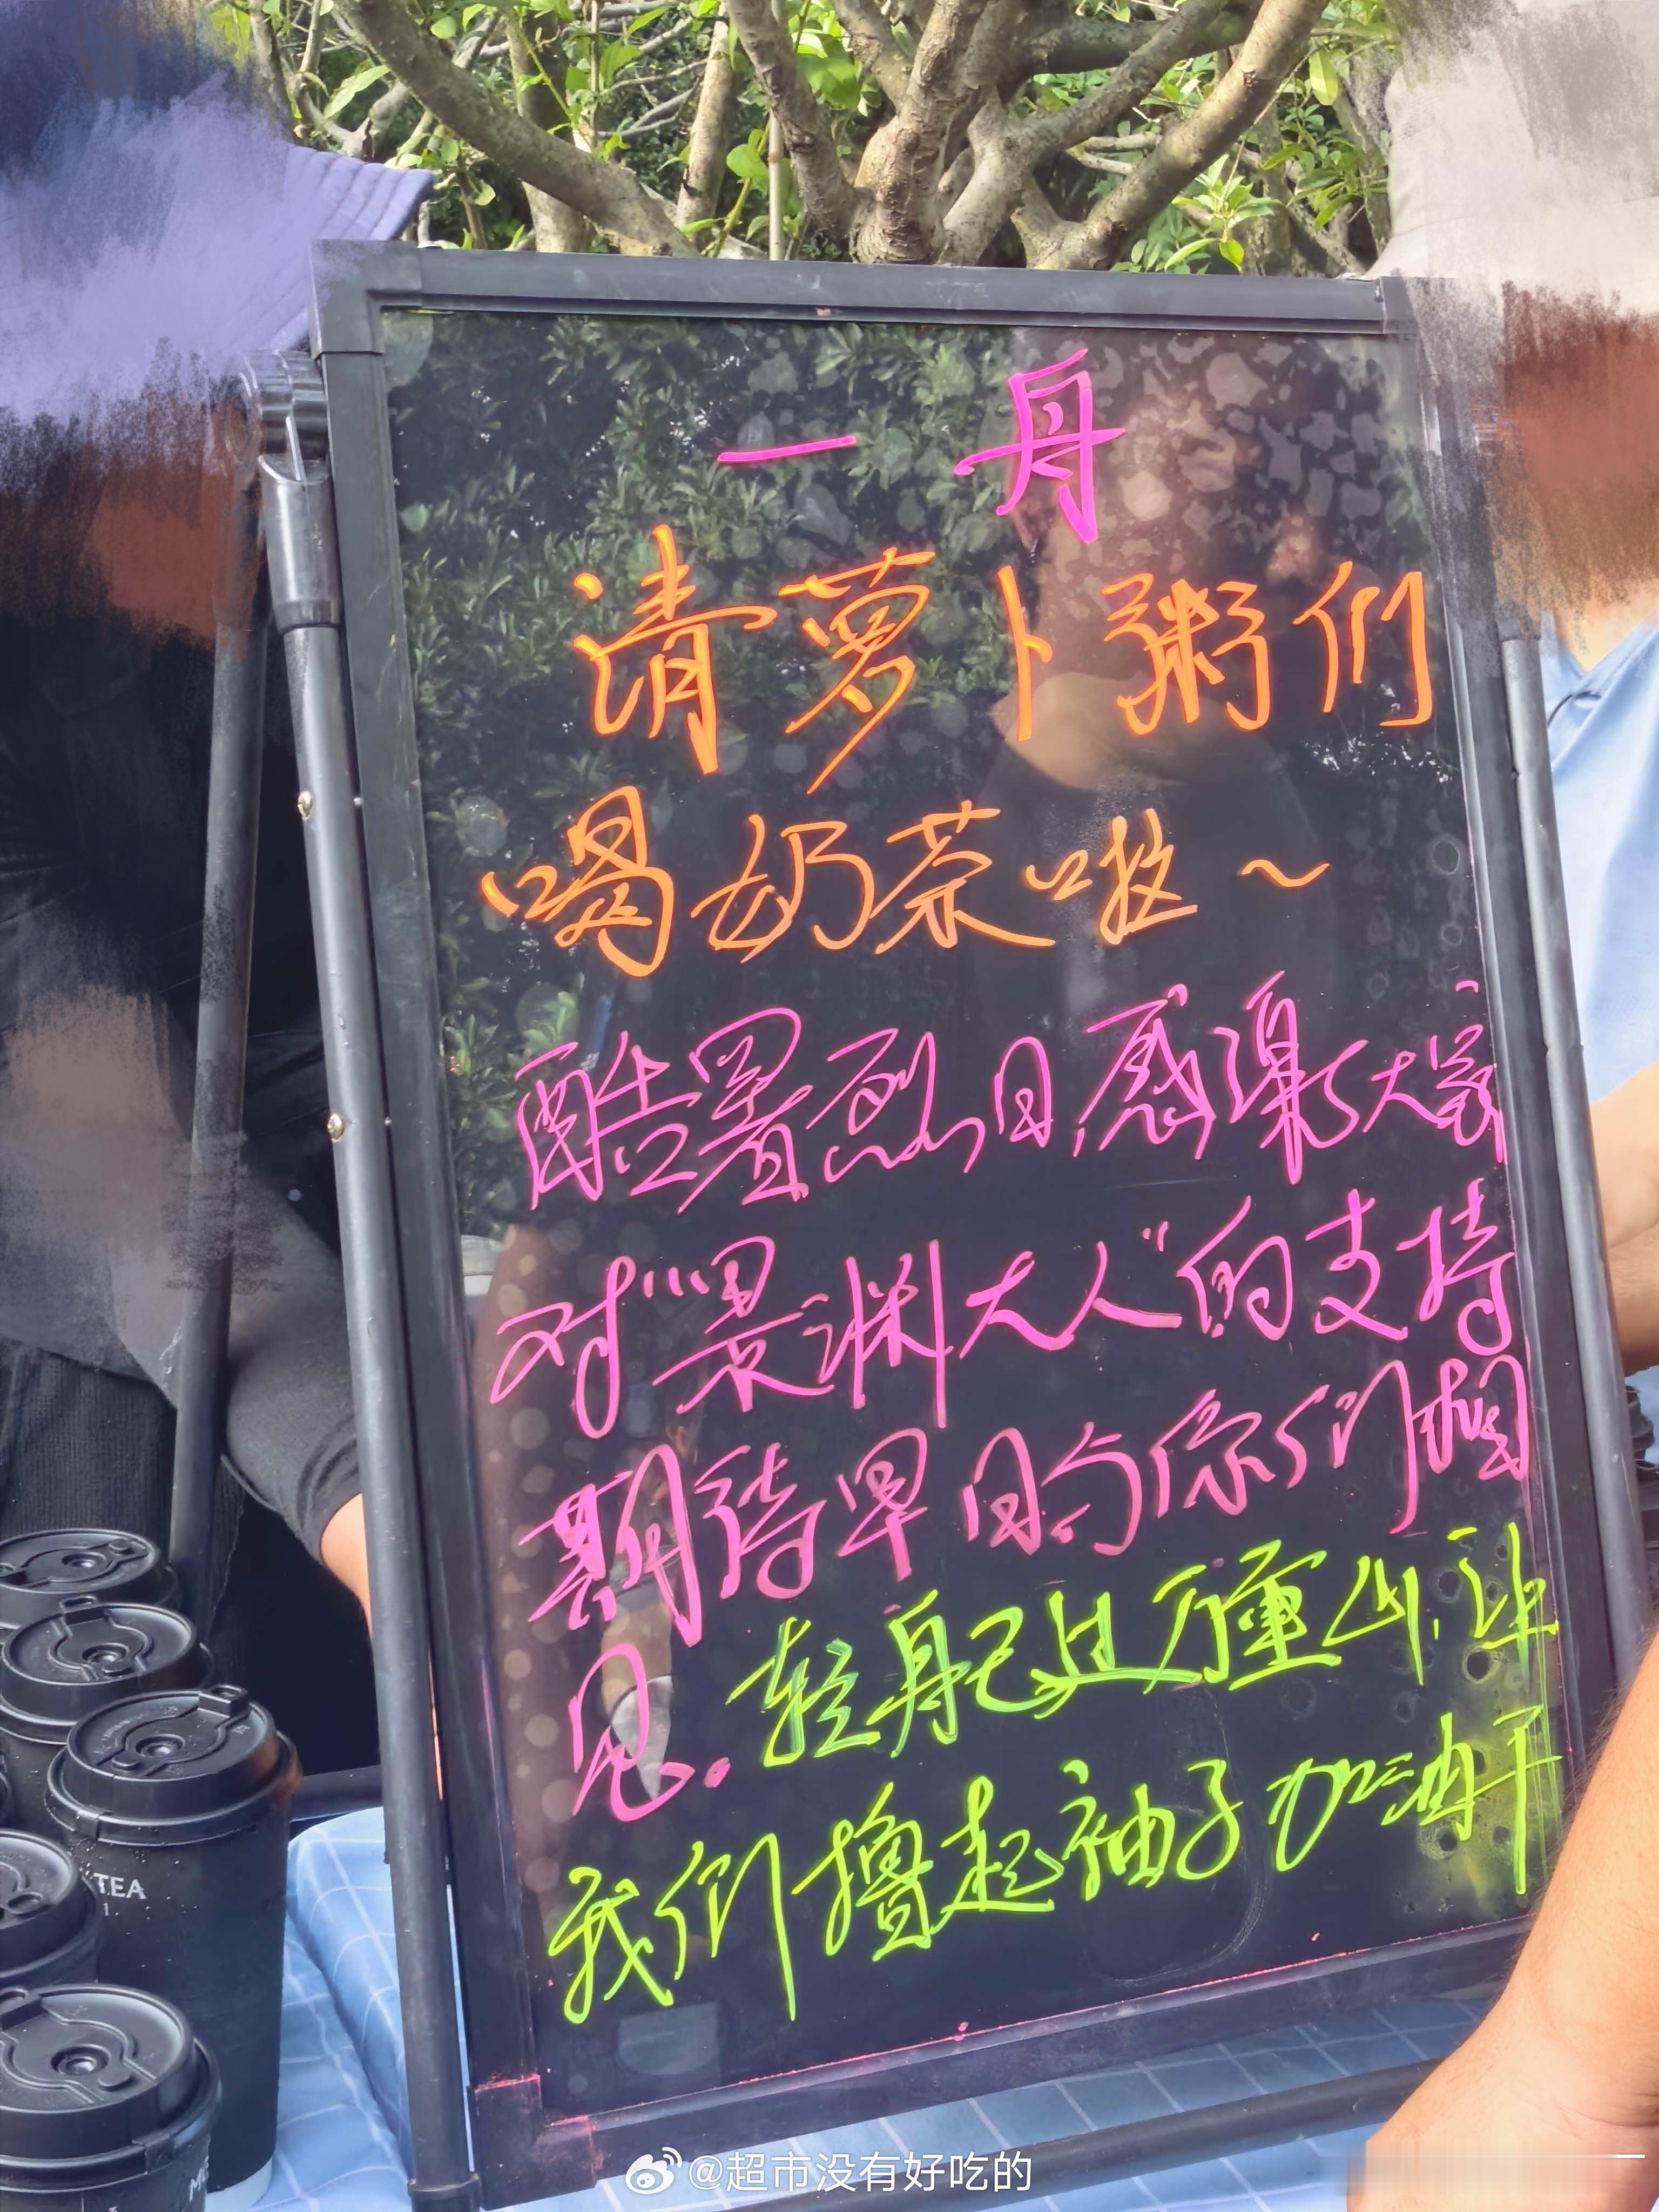 一丹
请萝卜粥们
喝奶茶啦～
酷暑烈日,感谢大家
对“景渊大人”的支持
期待早日与你们相
见.轻舟已过万重山,让
我们撸起袖子加油干
TEA
@超市没有好吃的